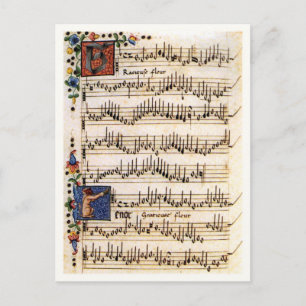 Racieuse fleur
enor Gracieuse fleur